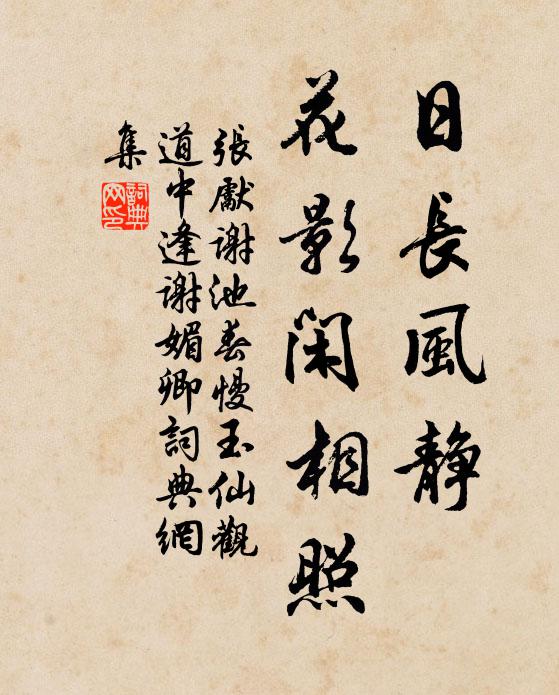 日長風静
花影閑相照
張獻謝池春慢玉仙觀
道中逢謝媚卿詞典網
集
詞典
网印